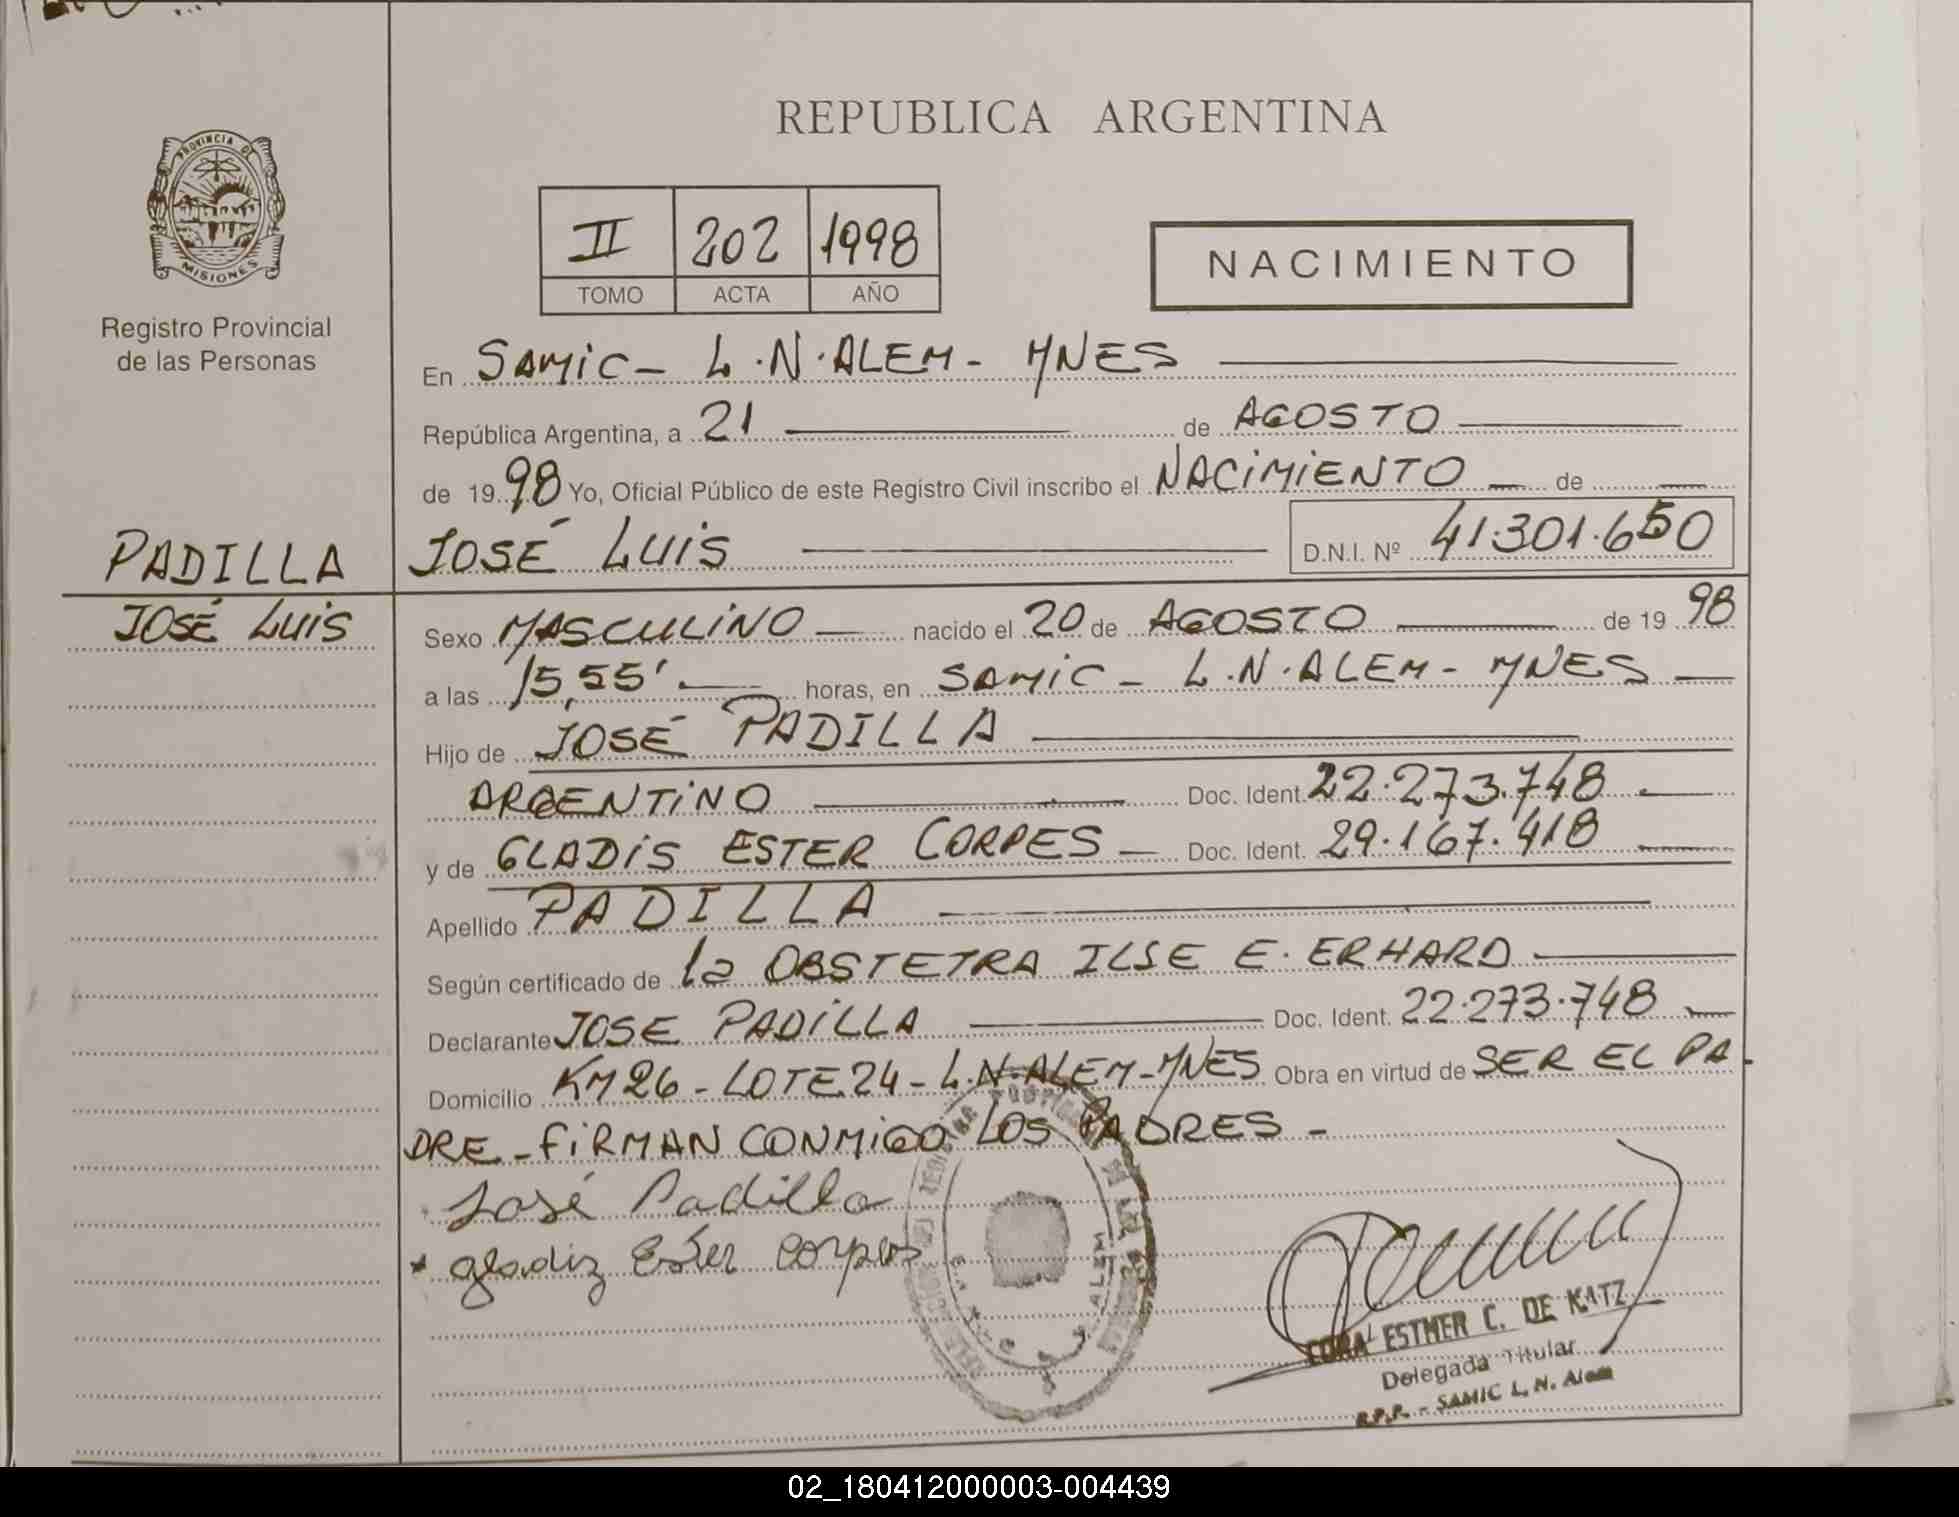 PROVINCIA DE
MISIONES
Registro Provincial
de las Personas
PADILLA
JOSÉ LUIS
REPUBLICA ARGENTINA
II 202 1998
TOMO ACTA AÑO
NACIMIENTO
En SAMIC - L.N.ALEM - MNES
República Argentina, a 21 de AGOSTO
de 1998 Yo, Oficial Público de este Registro Civil inscribo el NACIMIENTO de
JOSÉ LUIS D.N.I. Nº 41.301.650
Sexo MASCULINO nacido el 20 de AGOSTO de 1998
a las 15,55' horas, en SAMIC - L.N.ALEM - MNES
Hijo de JOSÉ PADILLA
ARGENTINO Doc. Ident. 22.273.748
y de GLADIS ESTER CORPES Doc. Ident. 29.167.418
Apellido PADILLA
Según certificado de la OBSTETRA ILSE E. ERHARD
Declarante JOSE PADILLA Doc. Ident. 22.273.748
Domicilio KM 26 - LOTE 24 - L.N.ALEM - MNES Obra en virtud de SER EL PA
DRE - FIRMAN CONMIGO LOS PADRES -
José Padilla
gladiz Ester corpes
ALEM
ESTHER C. DE KATZ
Delegada Titular
R.P.P. - SAMIC L. N. Alem
02_180412000003-004439